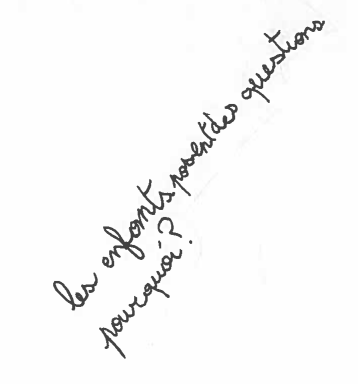 les enfants posent des questions
pourquoi ?